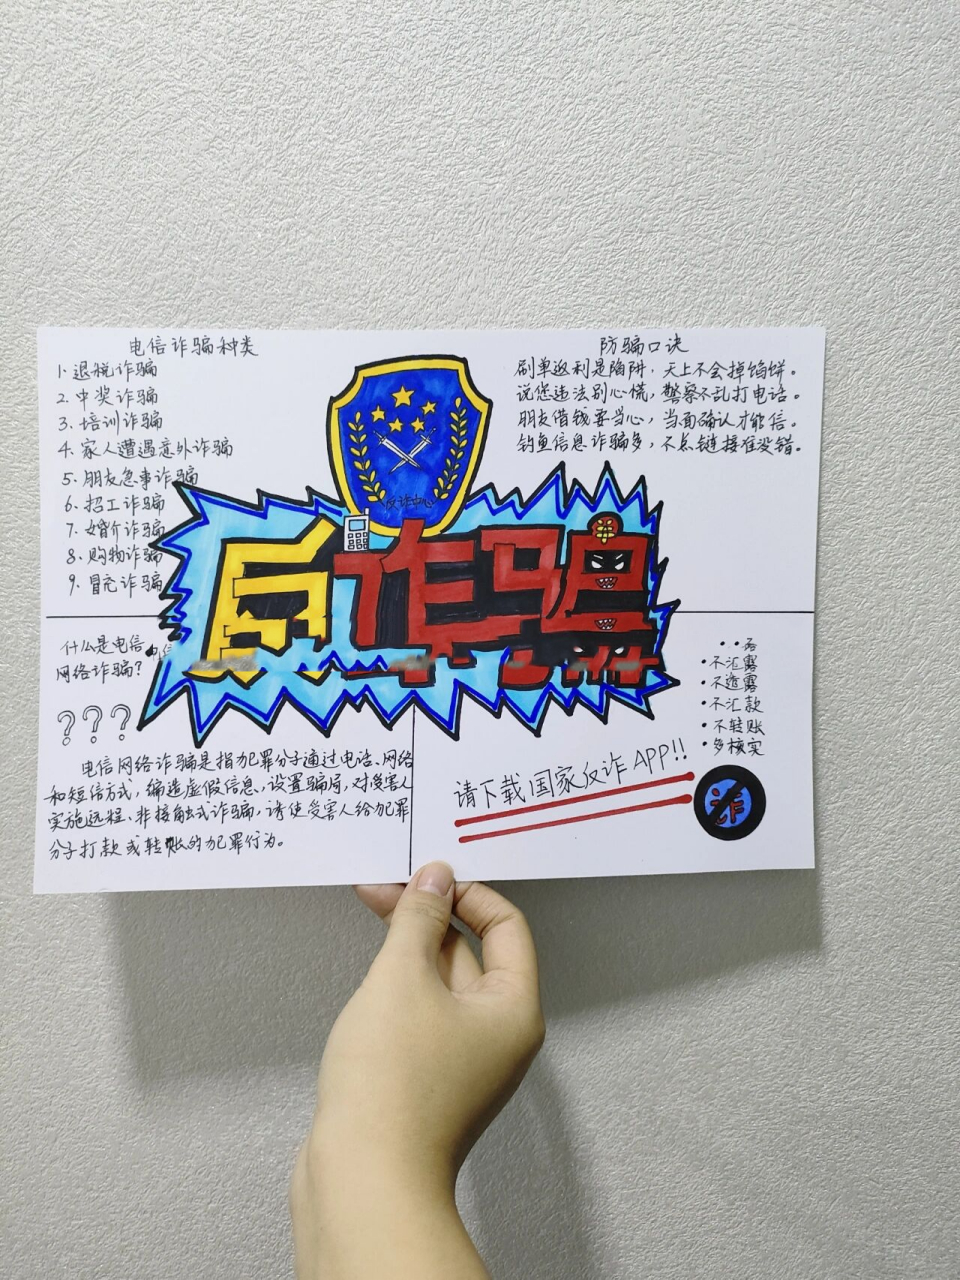 电信诈骗种类
1. 退税诈骗
2. 中奖诈骗
3. 培训诈骗
4. 家人遭遇意外诈骗
5. 朋友急事诈骗
6. 招工诈骗
7. 婚介诈骗
8. 购物诈骗
9. 冒充诈骗
防骗口诀
刷单返利是陷阱，天上不会掉馅饼。
说您违法别心慌，警察不乱打电话。
朋友借钱要当心，当面确认才能信。
钓鱼信息诈骗多，不点链接准没错。
反诈中心
反诈骗
什么是电信
网络诈骗？
???
电信网络诈骗是指犯罪分子通过电话、网络
和短信方式，编造虚假信息，设置骗局，对受害人
实施远程、非接触式诈骗，诱使受害人给犯罪
分子打款或转账的犯罪行为。
·不汇露
·不透露
·不汇款
·不转账
·多核实
请下载国家反诈APP!!
诈